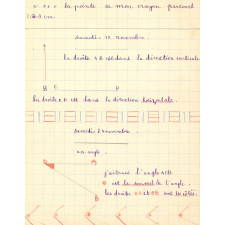 la pointe de mon crayon parcourt
Samedi 10 novembre.
la droite A B est dans la direction verticale
B C D
la droite C D est dans la direction horizontale.
Samedi 2 novembre
un angle.
j'ai tracé l'angle
est le sommet de l'angle.
les droites et sont les côtés.
B